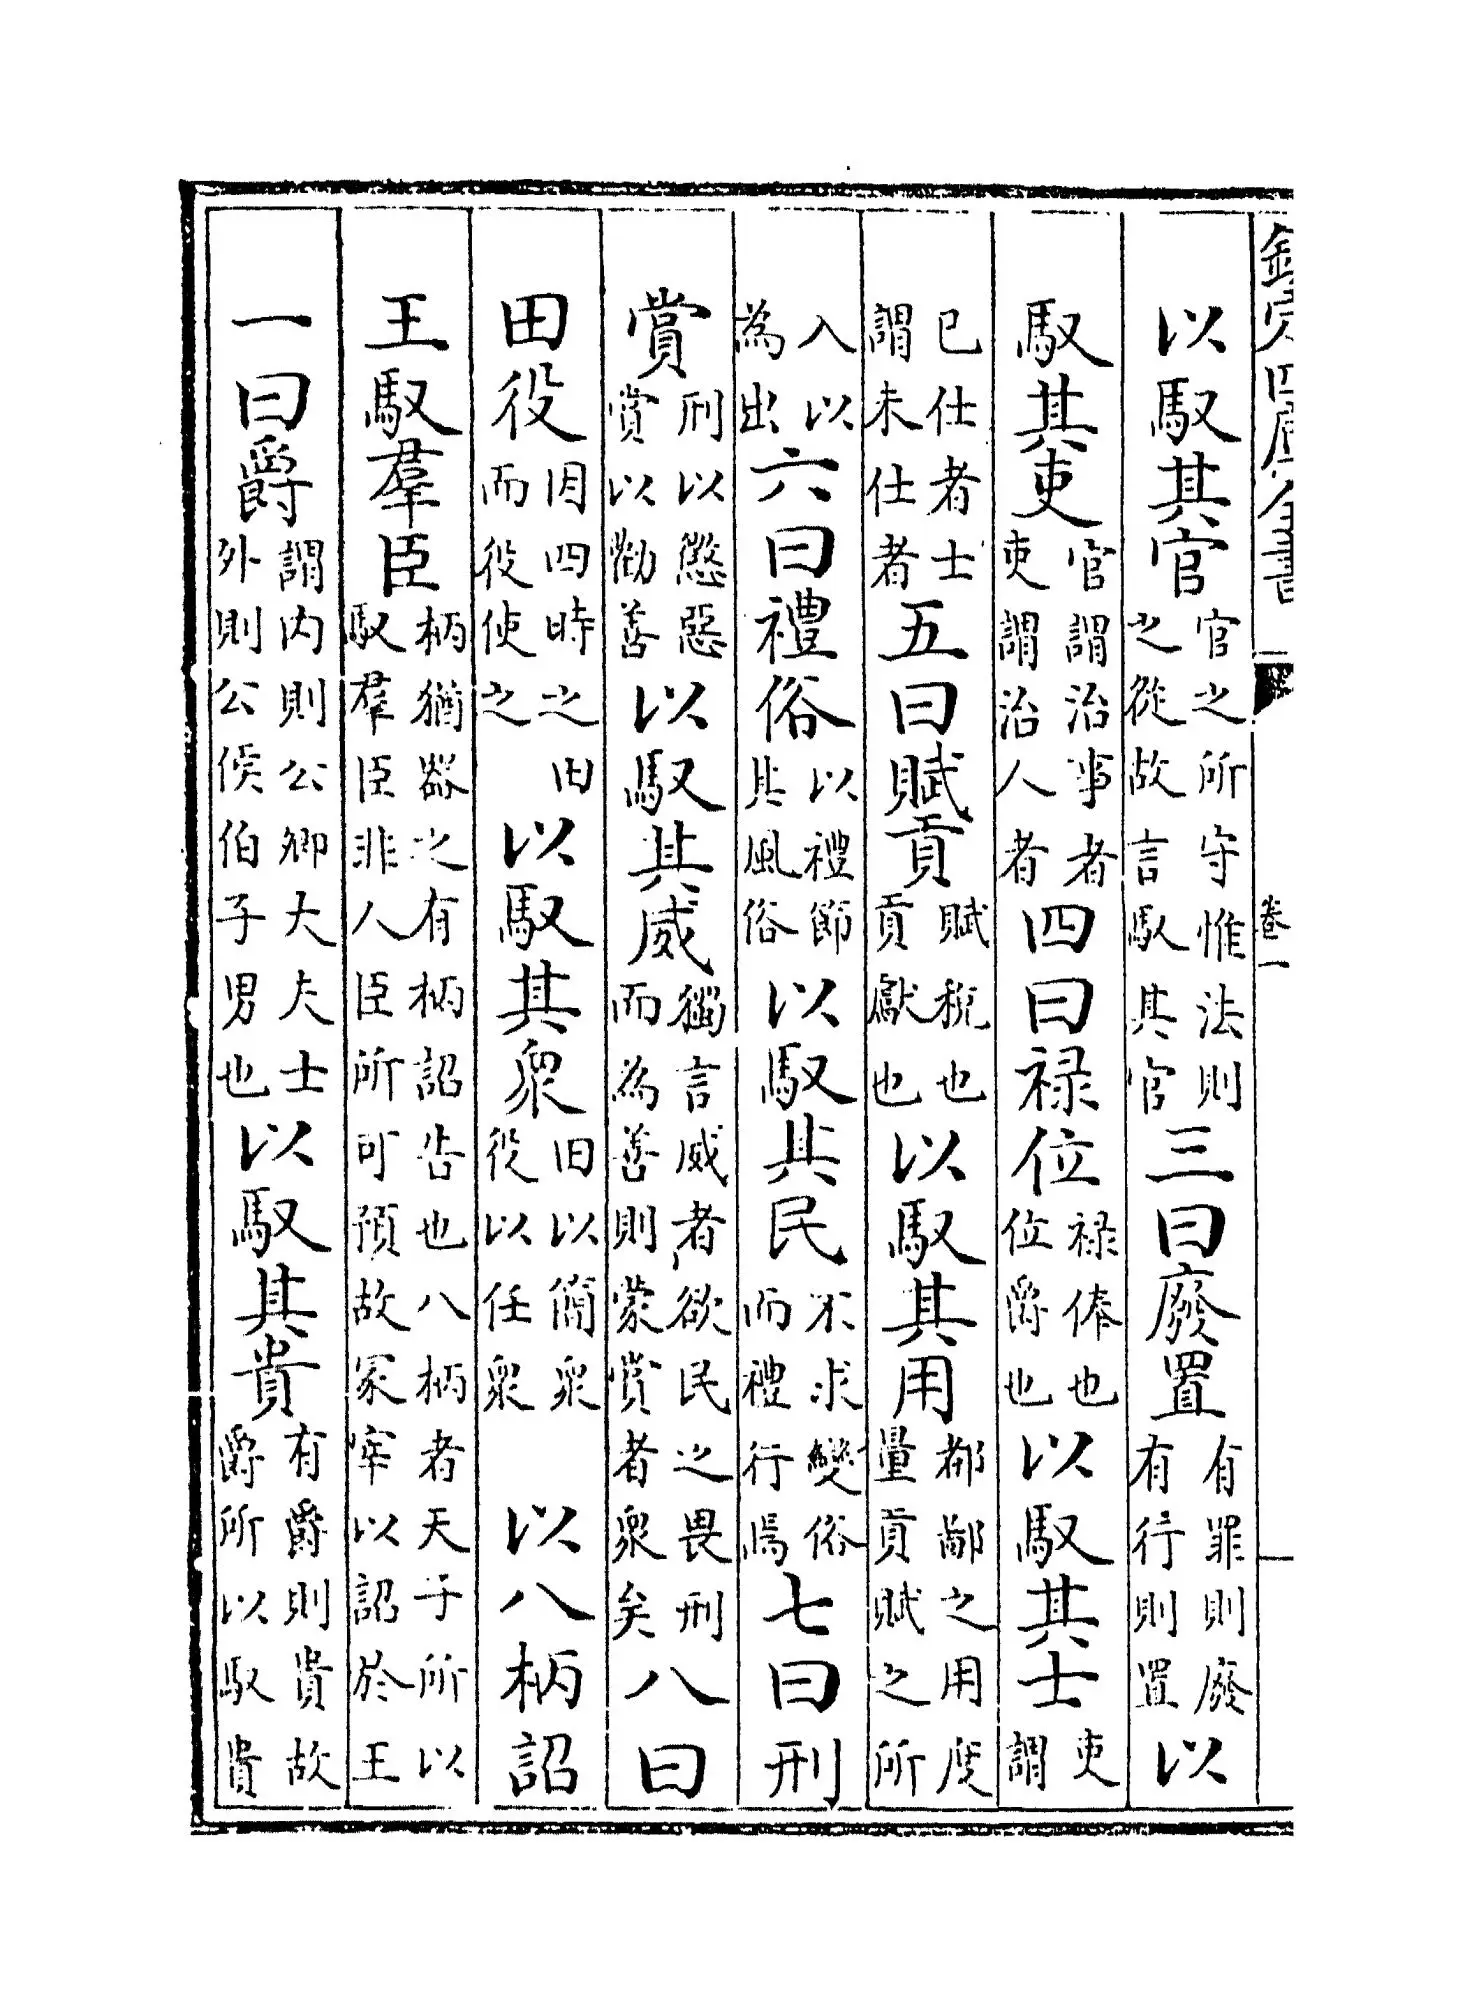 欽定四庫全書 卷一
以馭其官官之所守惟法則之從故言馭其官三曰廢置有罪則廢有行則置以
馭其吏官謂治事者吏謂治人者四曰禄位禄俸也位爵也以馭其士吏謂
已仕者士謂未仕者五曰賦貢賦稅也貢獻也以馭其用都鄙之用度量貢賦之所
入以為出六曰禮俗以禮節其風俗以馭其民不求變俗而禮行焉七曰刑
賞刑以懲惡賞以勸善以馭其威獨言威者欲民之畏刑而為善則蒙賞者衆矣八曰
田役因四時之田而役使之以馭其衆田以簡衆役以任衆以八柄詔
王馭羣臣柄猶器之有柄詔告也八柄者天子所以馭羣臣非人臣所可預故冢宰以詔於王
一曰爵謂内則公卿大夫士外則公侯伯子男也以馭其貴有爵則貴故爵所以馭貴